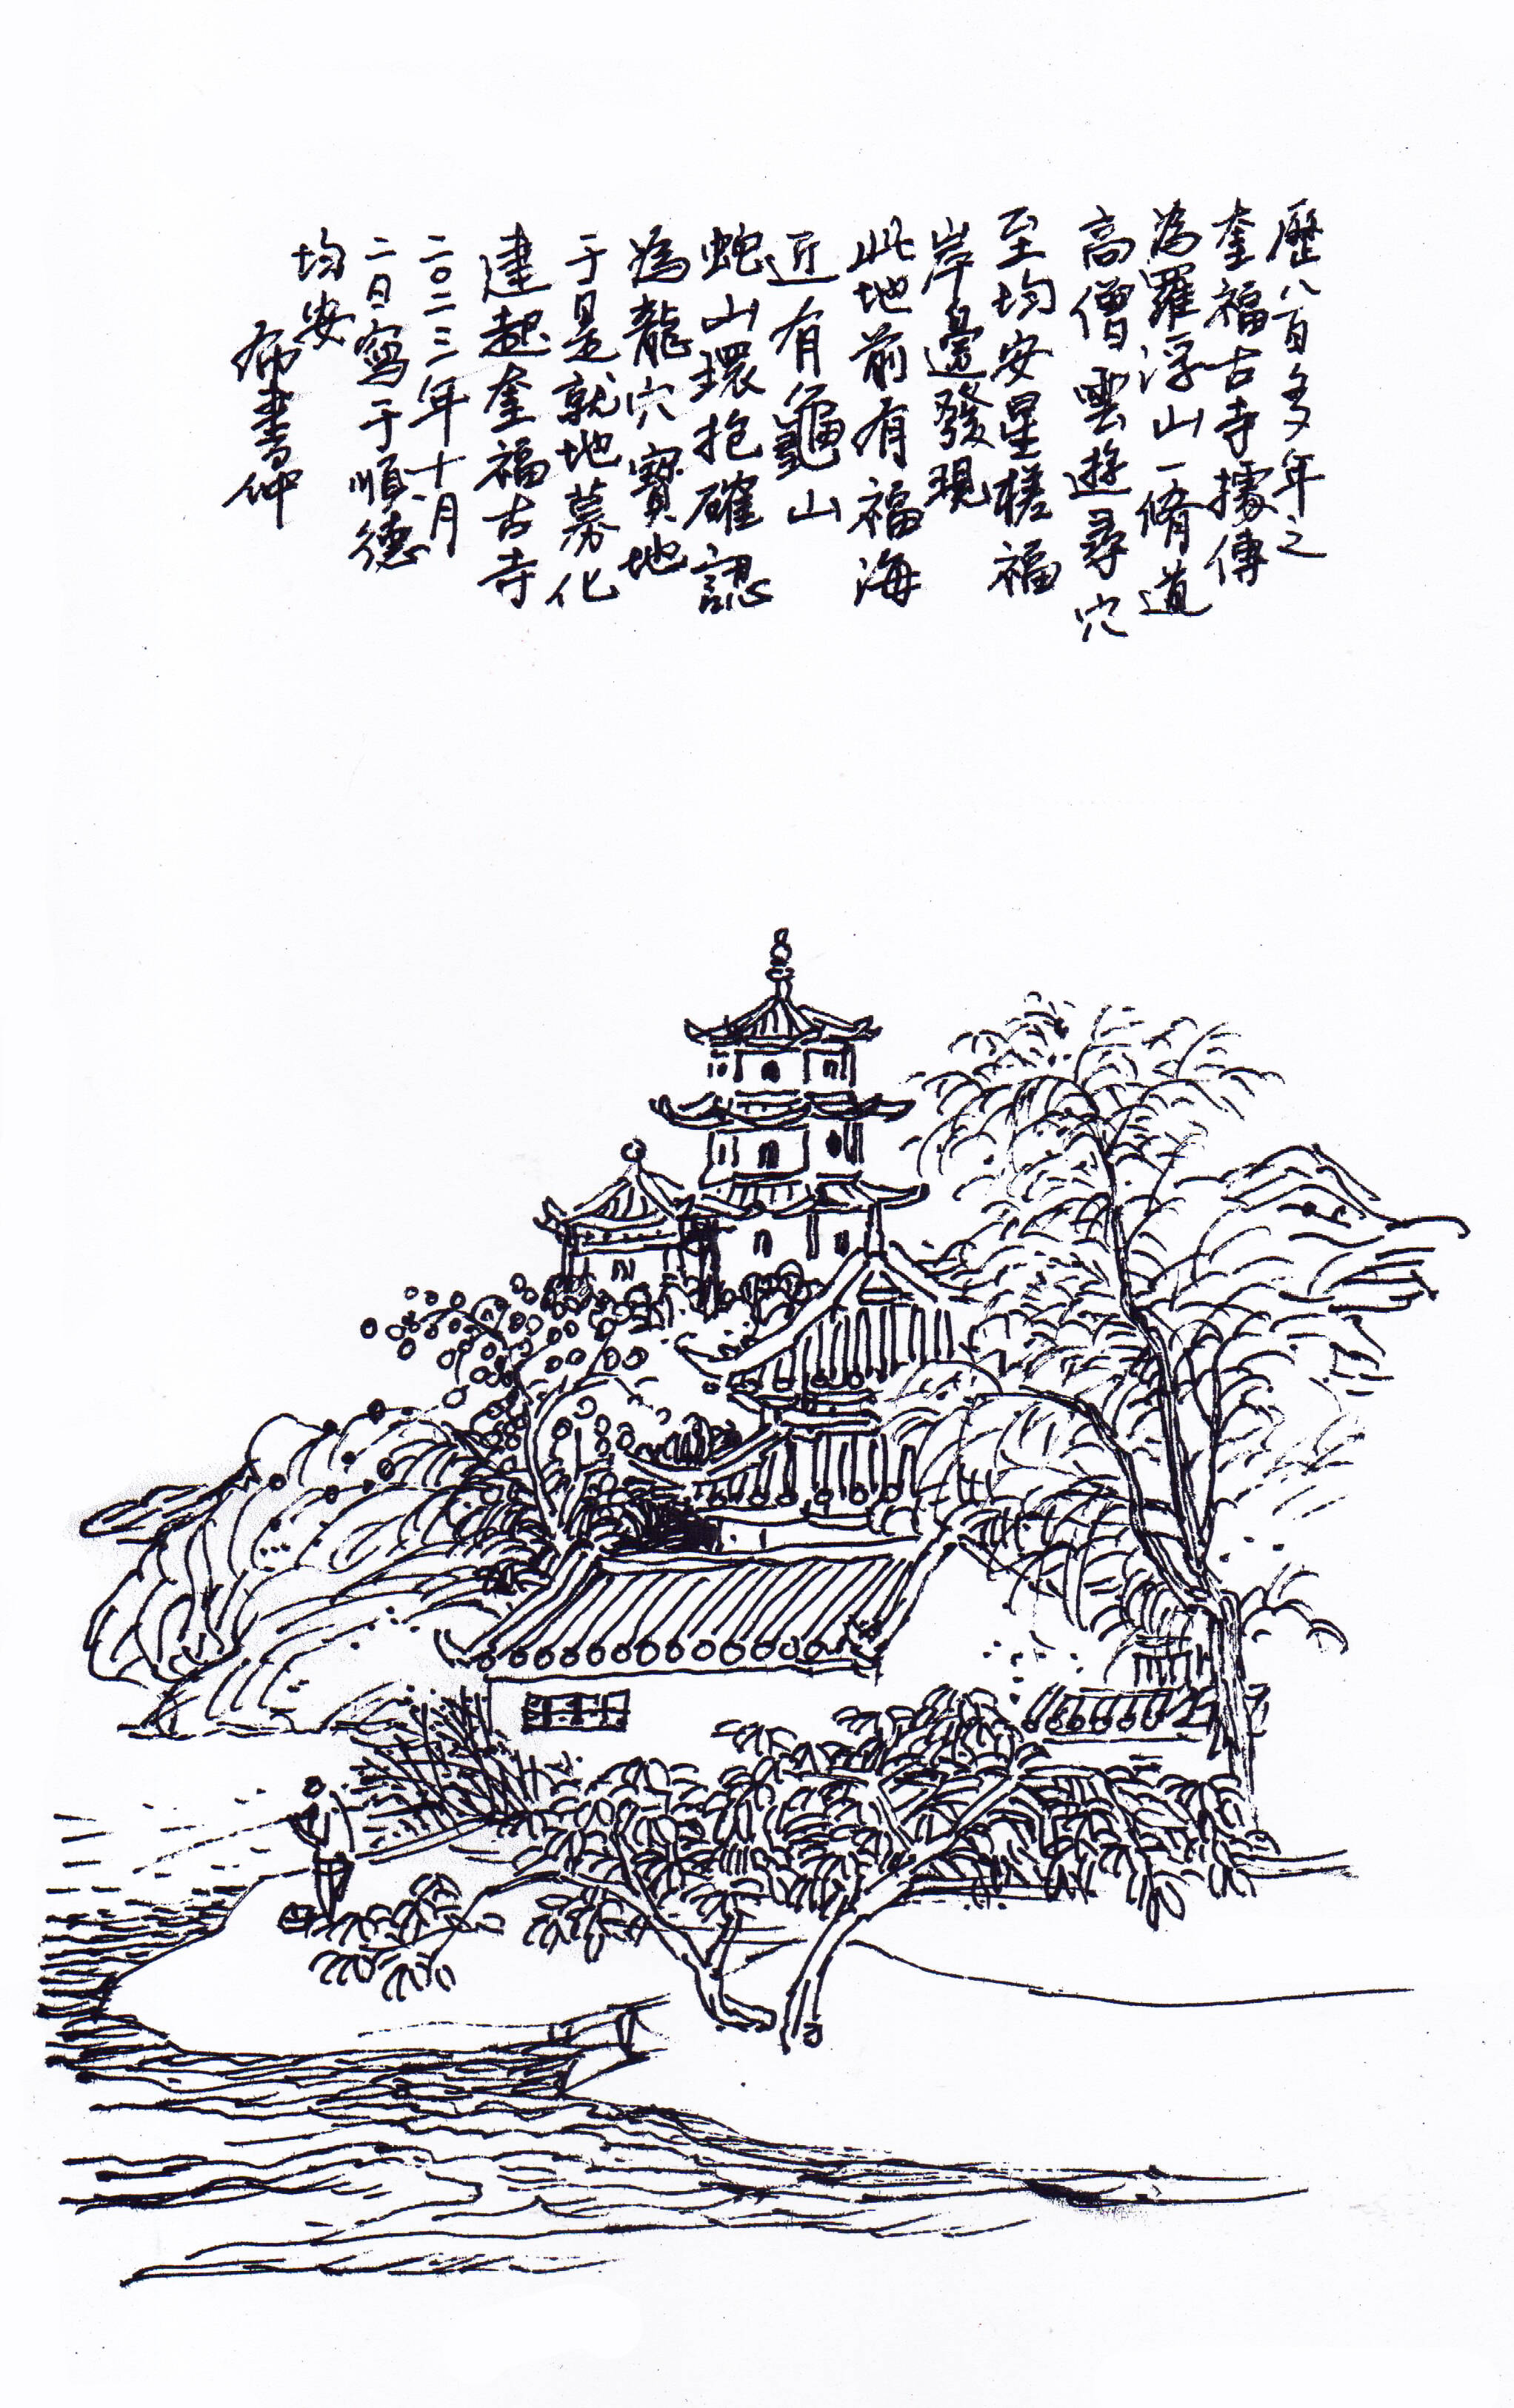 歷八百多年之
奎福古寺據傳
為羅浮山一脩道
高僧雲遊尋穴
至均安星槎福
岸邊發現
此地前有福海
近有龜山
蛇山環抱確認
為龍穴寶地
于是就地募化
建起奎福古寺
二〇二三年十月
二日寫于順德
均安
布書仲